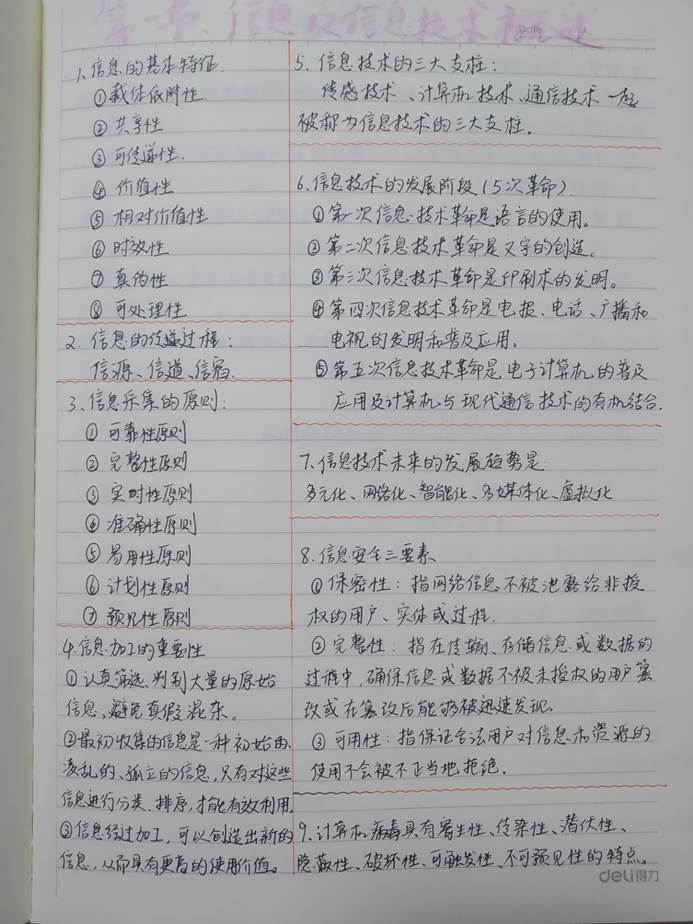 第一节、信息及信息技术概述
Date.
1、信息的基本特征.
①载体依附性
②共享性
③可传递性.
④价值性
⑤相对价值性
⑥时效性
⑦真伪性
⑧可处理性
2、信息的传递过程：
信源、信道、信宿.
3、信息采集的原则：
①可靠性原则
②完整性原则
③实时性原则
④准确性原则
⑤易用性原则
⑥计划性原则
⑦预见性原则
4.信息加工的重要性
①认真筛选、判别大量的原始
信息，避免真假混杂。
②最初收集的信息是一种初始的、
凌乱的、孤立的信息，只有对这些
信息进行分类、排序，才能有效利用.
③信息经过加工，可以创造出新的
信息，从而具有更高的使用价值。
5.信息技术的三大支柱：
传感技术、计算机技术、通信技术一起
被称为信息技术的三大支柱.
6.信息技术的发展阶段（5次革命）
①第一次信息技术革命是语言的使用。
②第二次信息技术革命是文字的创造。
③第三次信息技术革命是印刷术的发明。
④第四次信息技术革命是电报、电话、广播和
电视的发明和普及应用。
⑤第五次信息技术革命是电子计算机的普及
应用及计算机与现代通信技术的有机结合.
7、信息技术未来的发展趋势是
多元化、网络化、智能化、多媒体化、虚拟化
8.信息安全三要素
①保密性：指网络信息不被泄露给非授
权的用户、实体或过程.
②完整性：指在传输、存储信息或数据的
过程中，确保信息或数据不被未授权的用户篡
改或在篡改后能够被迅速发现.
③可用性：指保证合法用户对信息和资源的
使用不会被不正当地拒绝.
9.计算机病毒具有寄生性、传染性、潜伏性、
隐蔽性、破坏性、可触发性、不可预见性的特点。
deli得力